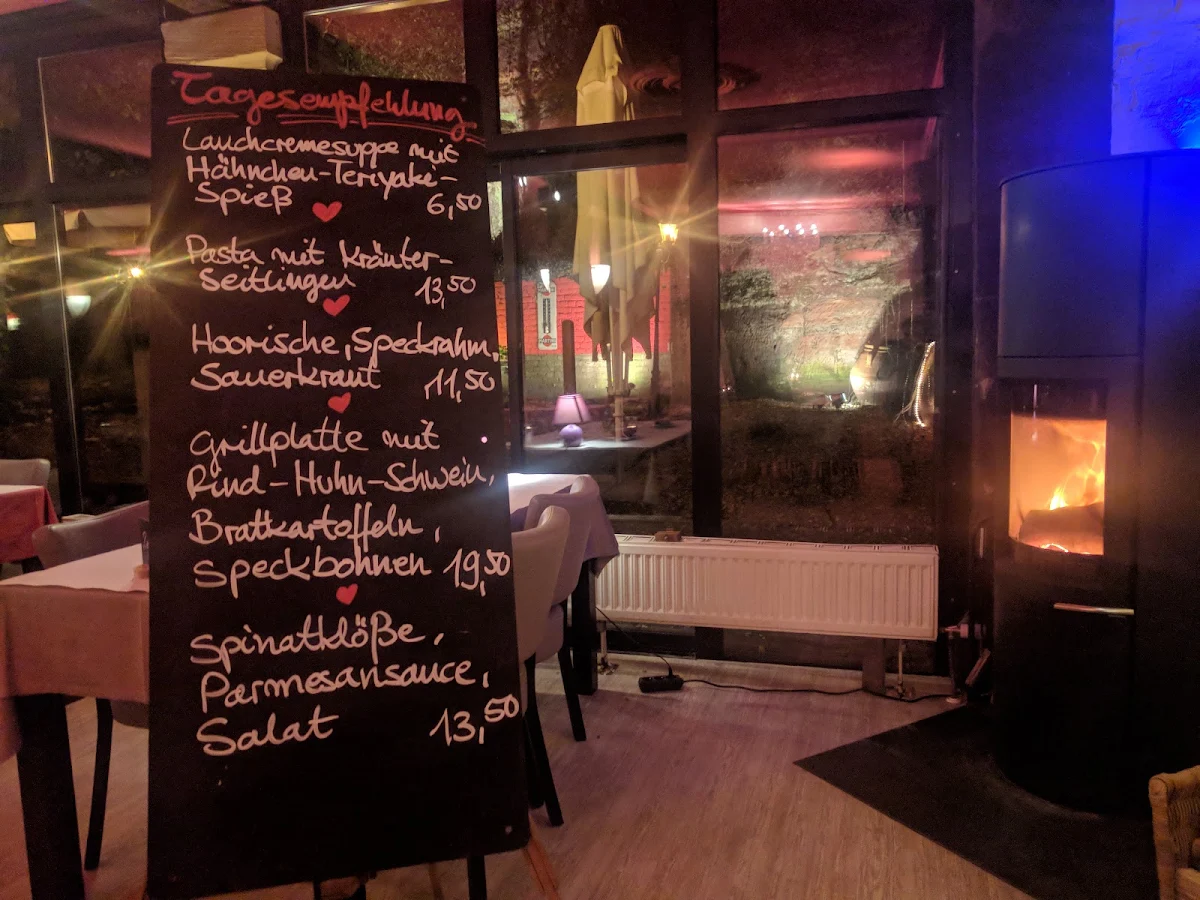 Tagesempfehlung
Lauchcremesuppe mit
Hähnchen-Teriyaki-
Spieß 6,50
Pasta mit Kräuter-
Seitlingen 13,50
Hoorische, Speckrahm,
Sauerkraut 11,50
Grillplatte mit
Rind-Huhn-Schwein,
Bratkartoffeln,
Speckbohnen 19,50
Spinatklöße,
Parmesansauce,
Salat 13,50